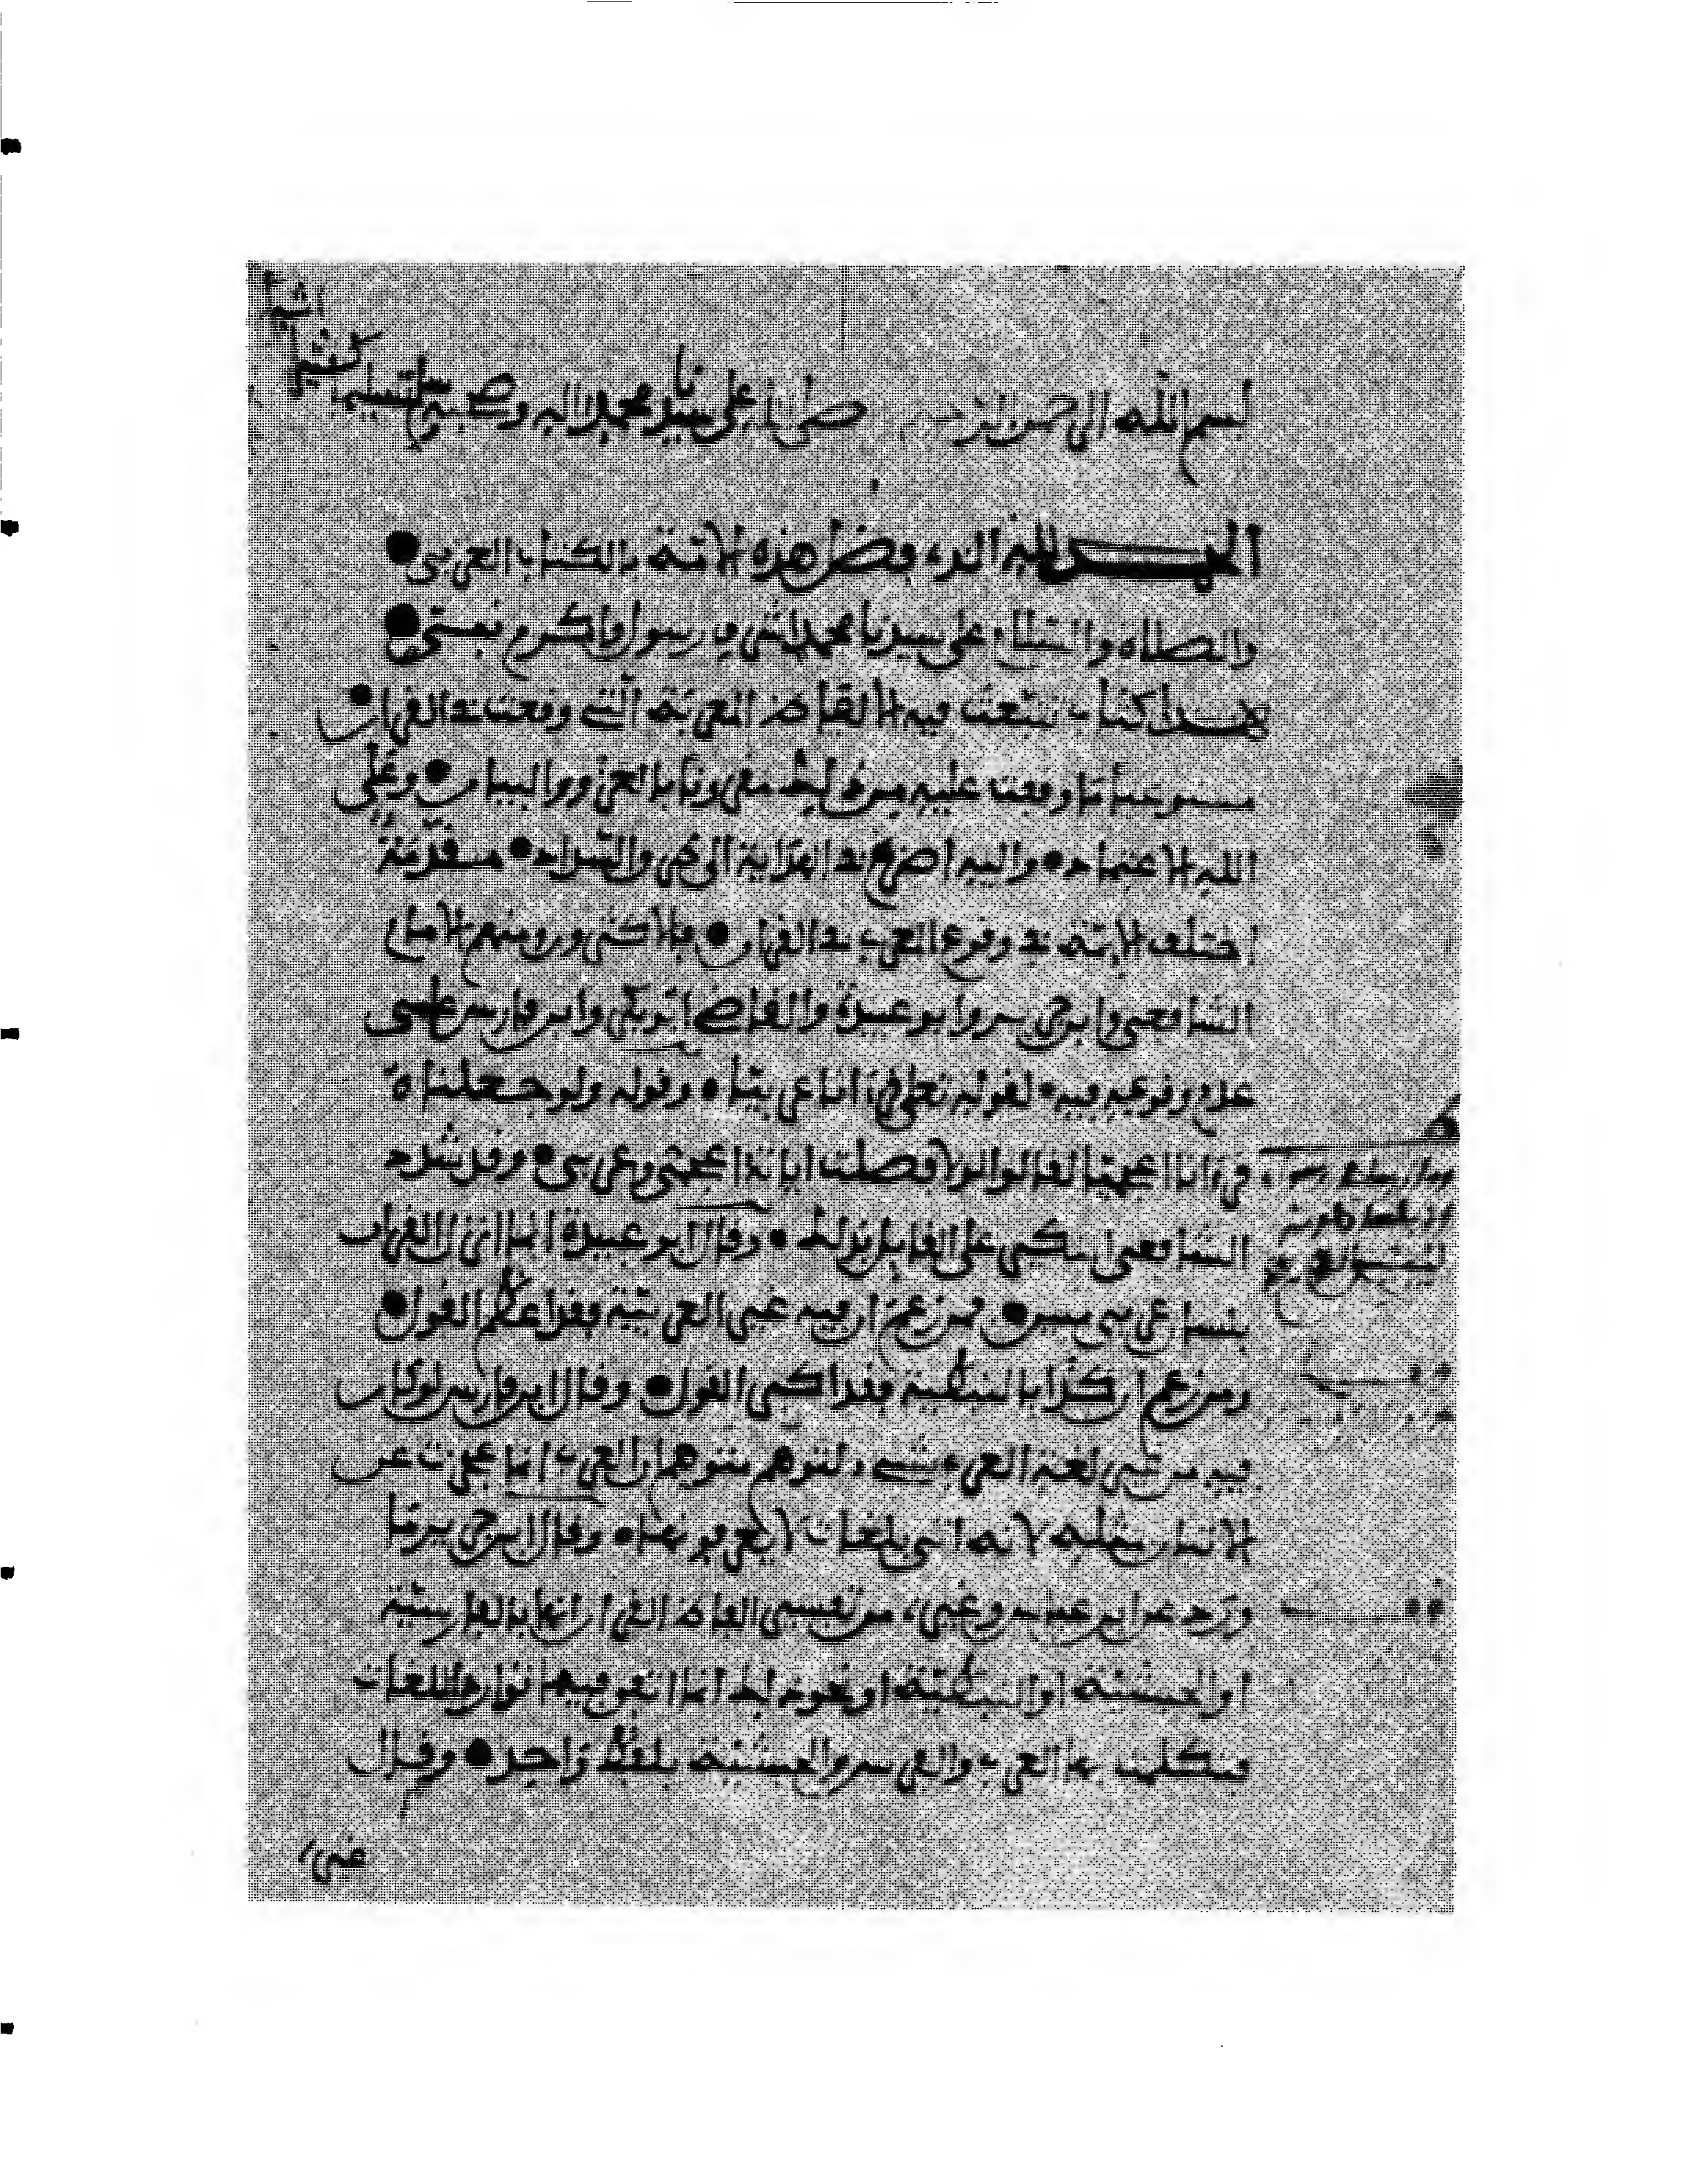 بسم الله الرحمن الر صلى الله على سيدنا محمد واله وصحبه وسلم تسليما
كثيرا
الحمد لله الذي فضل هذه الامة بالكتاب العربي
والصلاة والسلام على سيدنا محمد اشرف رسول واكرم نبي
هذا كتاب تتبعت فيه الالفاظ المعربة التي وقعت في القران
مستوعبا ما وقفت عليه من ذلك مقرونا بالعزو والبيان وعلى
الله الاعتماد واليه اضرع في الهداية الى والسداد مقدمة
اختلف الايمة في وقوع المعرب في القران فالاكثرون ومنهم الامام
الشافعي وابن جرير وابو عبيدة والقاضي ابو بكر وابن فارس على
عدم وقوعه فيه لقوله تعلى قرءانا عربيا وقوله ولو جعلناه
قرءانا اعجميا لقالوا لولا فصلت ءاياته ءاعجمي وعربي وقد شدد
الشافعي النكير على القايل بذلك وقال ابو عبيدة انما انزل القران
بلسان عربي مبين فمن زعم ان فيه غير العربية فقد اعظم القول
ومن زعم ان كذا بالنبطية فقد اكبر القول وقال ابن فارس لو كان
فيه من غير لغة العرب شيء لتوهم متوهم ان العرب انما عجزت عن
الاتيان بمثله لانه اتى بلغات لا يعرفونها وقال ابن جرير ما
ورد عن ابن عباس وغيره من تفسير الفاظ القرءان انها بالفارسية
او الحبشية او النبطية او نحو ذلك انما اتفق فيها توارد اللغات
فتكلمت بها العرب والفرس والحبشة بلفظ واحد وقال
غيره